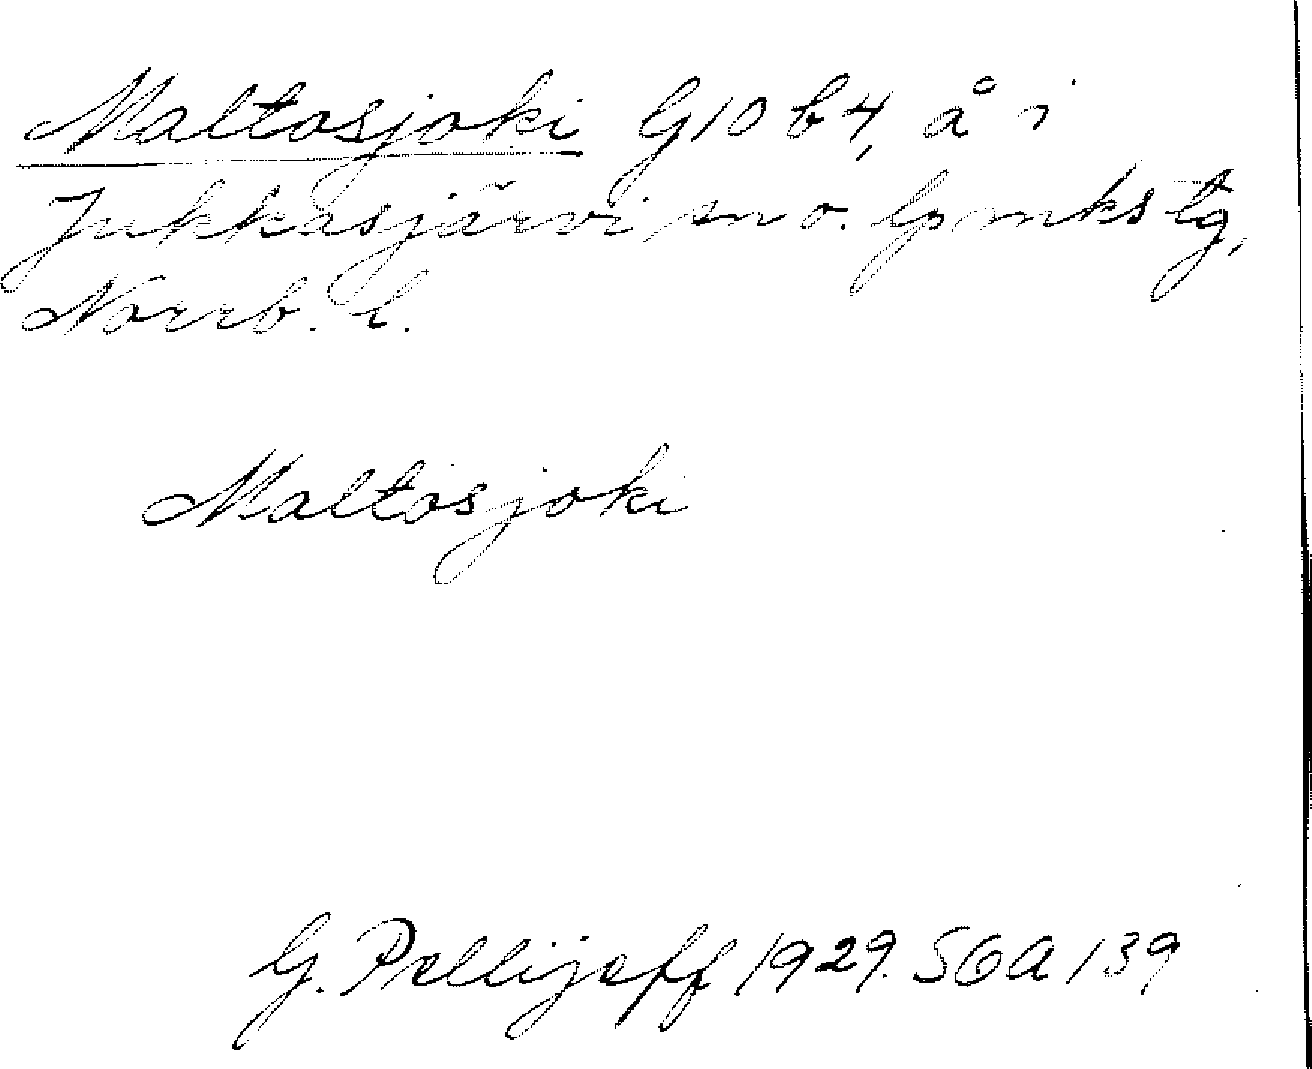 Maltosjoki G10 b4, å i
Jukkasjärvi sn o. lpmkstg,
Norrb. l.
Maltosjoki
G. Pellijeff 1929. SGA 139